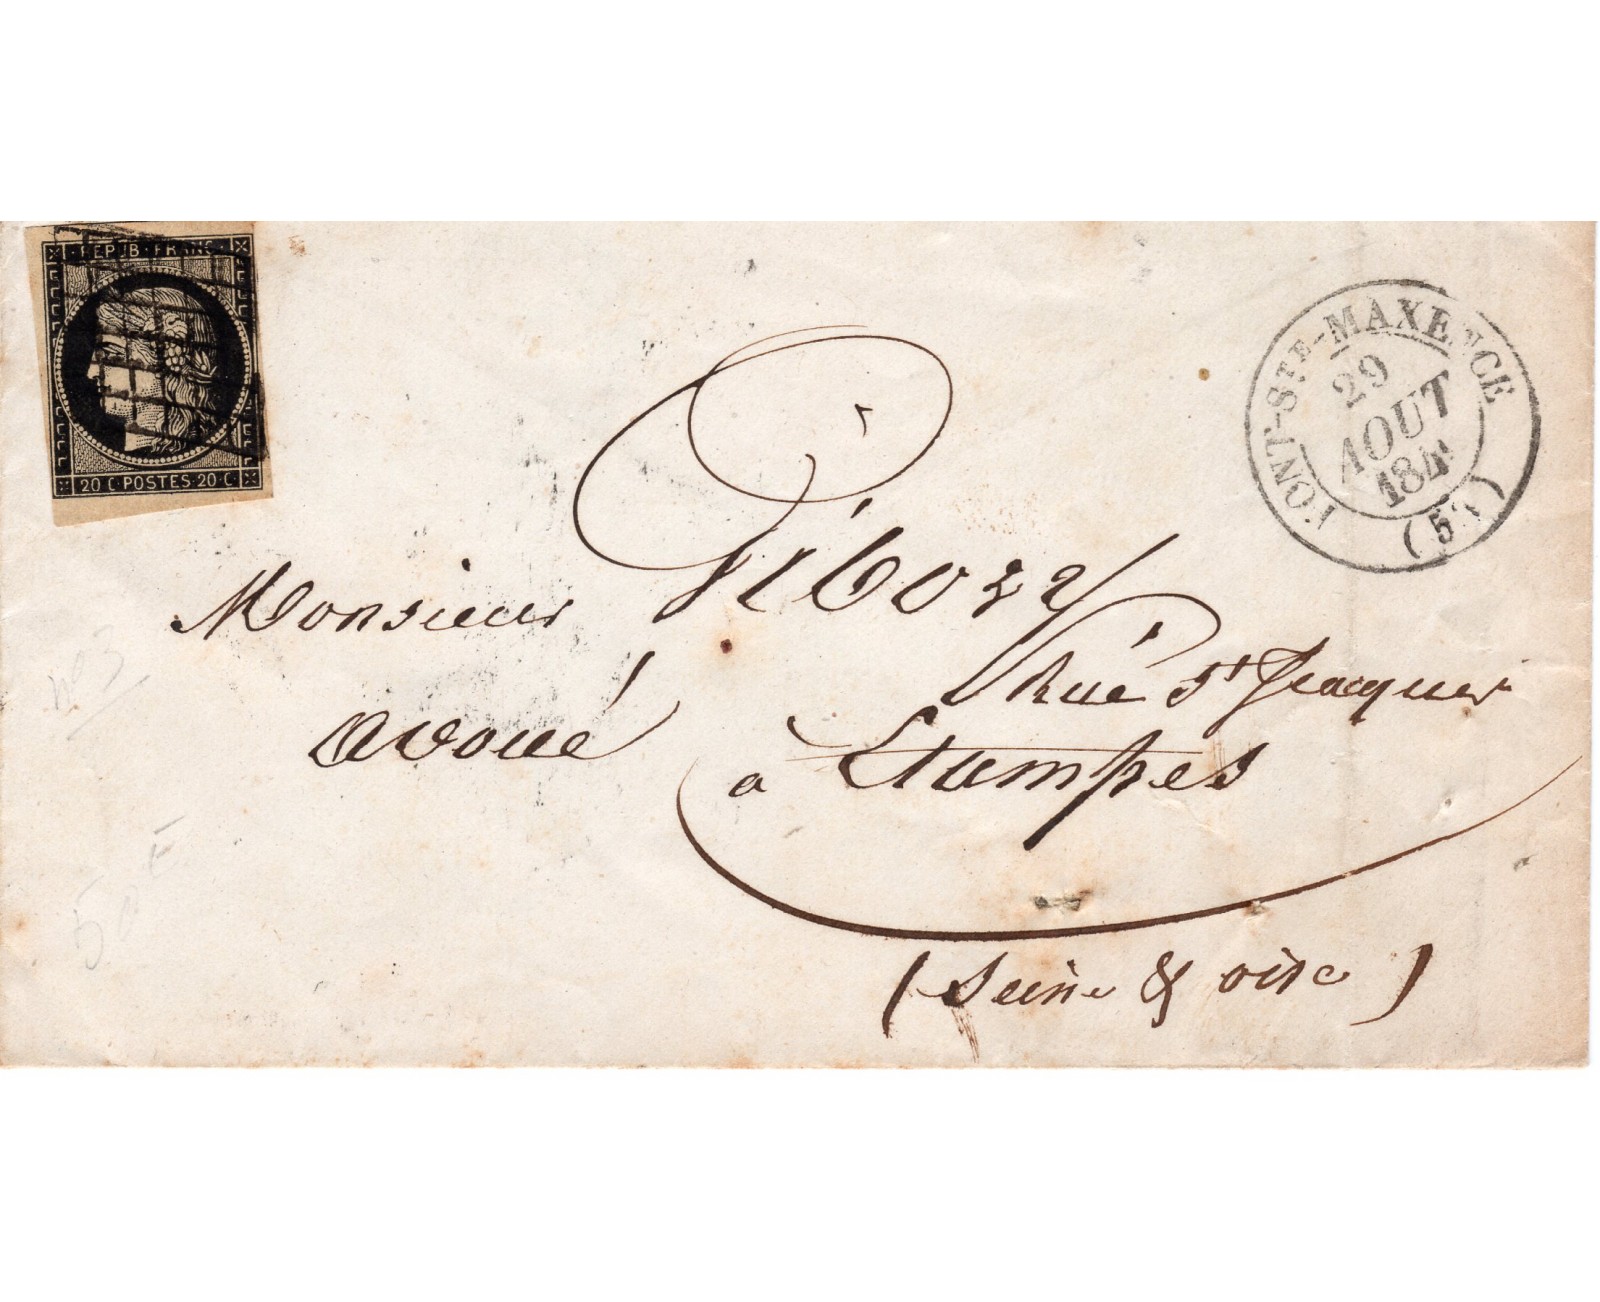 REPUB·FRANC·
20 C·POSTES·20·C·
PONT-STE-MAXENCE
29
AOUT
184
(5
Monsieur Gibory
avoué Rue St Jacques
à Etampes
(Seine & oise)
n° 3
50 F